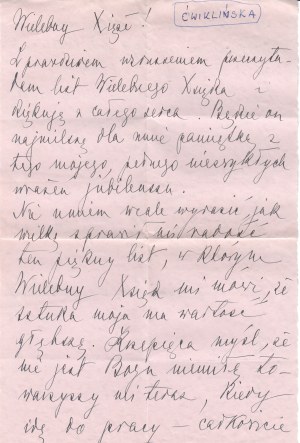 ĆWIKLIŃSKA
Wielebny Księże!
Z prawdziwem wzruszeniem przeczyta-
łam list Wielebnego Księdza i
dziękuję z całego serca. Będzie on
najmilszą dla mnie pamiątką z
tego mojego, pełnego niezwykłych
wrażeń jubileuszu.
Nie umiem wcale wyrazić jak
wielką sprawił mi radość
ten piękny list, w którym
Wielebny Ksiądz mi mówi, że
sztuka moja ma wartość
głębszą. Krzepiąca myśl, że
nie jest Bogu niemiłą to-
warzyszy mi teraz, kiedy
idę do pracy — całkowicie